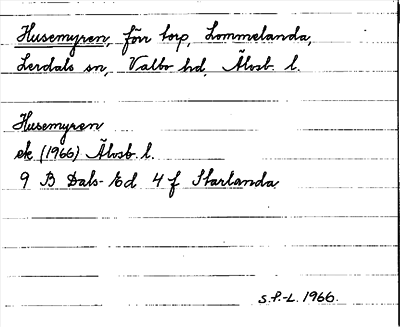 Husemyren, förr torp, Lommelanda,
Lerdals sn, Valbo hd, Älvsb. l.
Husemyren
ek (1966) Älvsb. l.
9 B Dals-Ed 4 f Starlanda
S.F.-L. 1966.